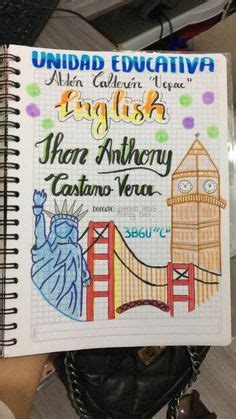 UNIDAD EDUCATIVA
Abdón Calderón "Uepac"
English
Jhon Anthony
Castano Vera
DOCENTE:
3BGU "C"